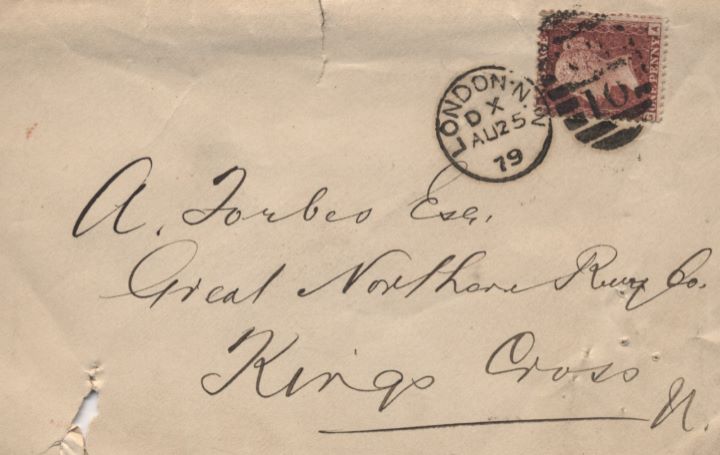 LONDON·N.W
DX
AU25
79
10
ONE PENNY
A. Forbes Esq.
Great Northern Rwy Co.
Kings Cross
N.